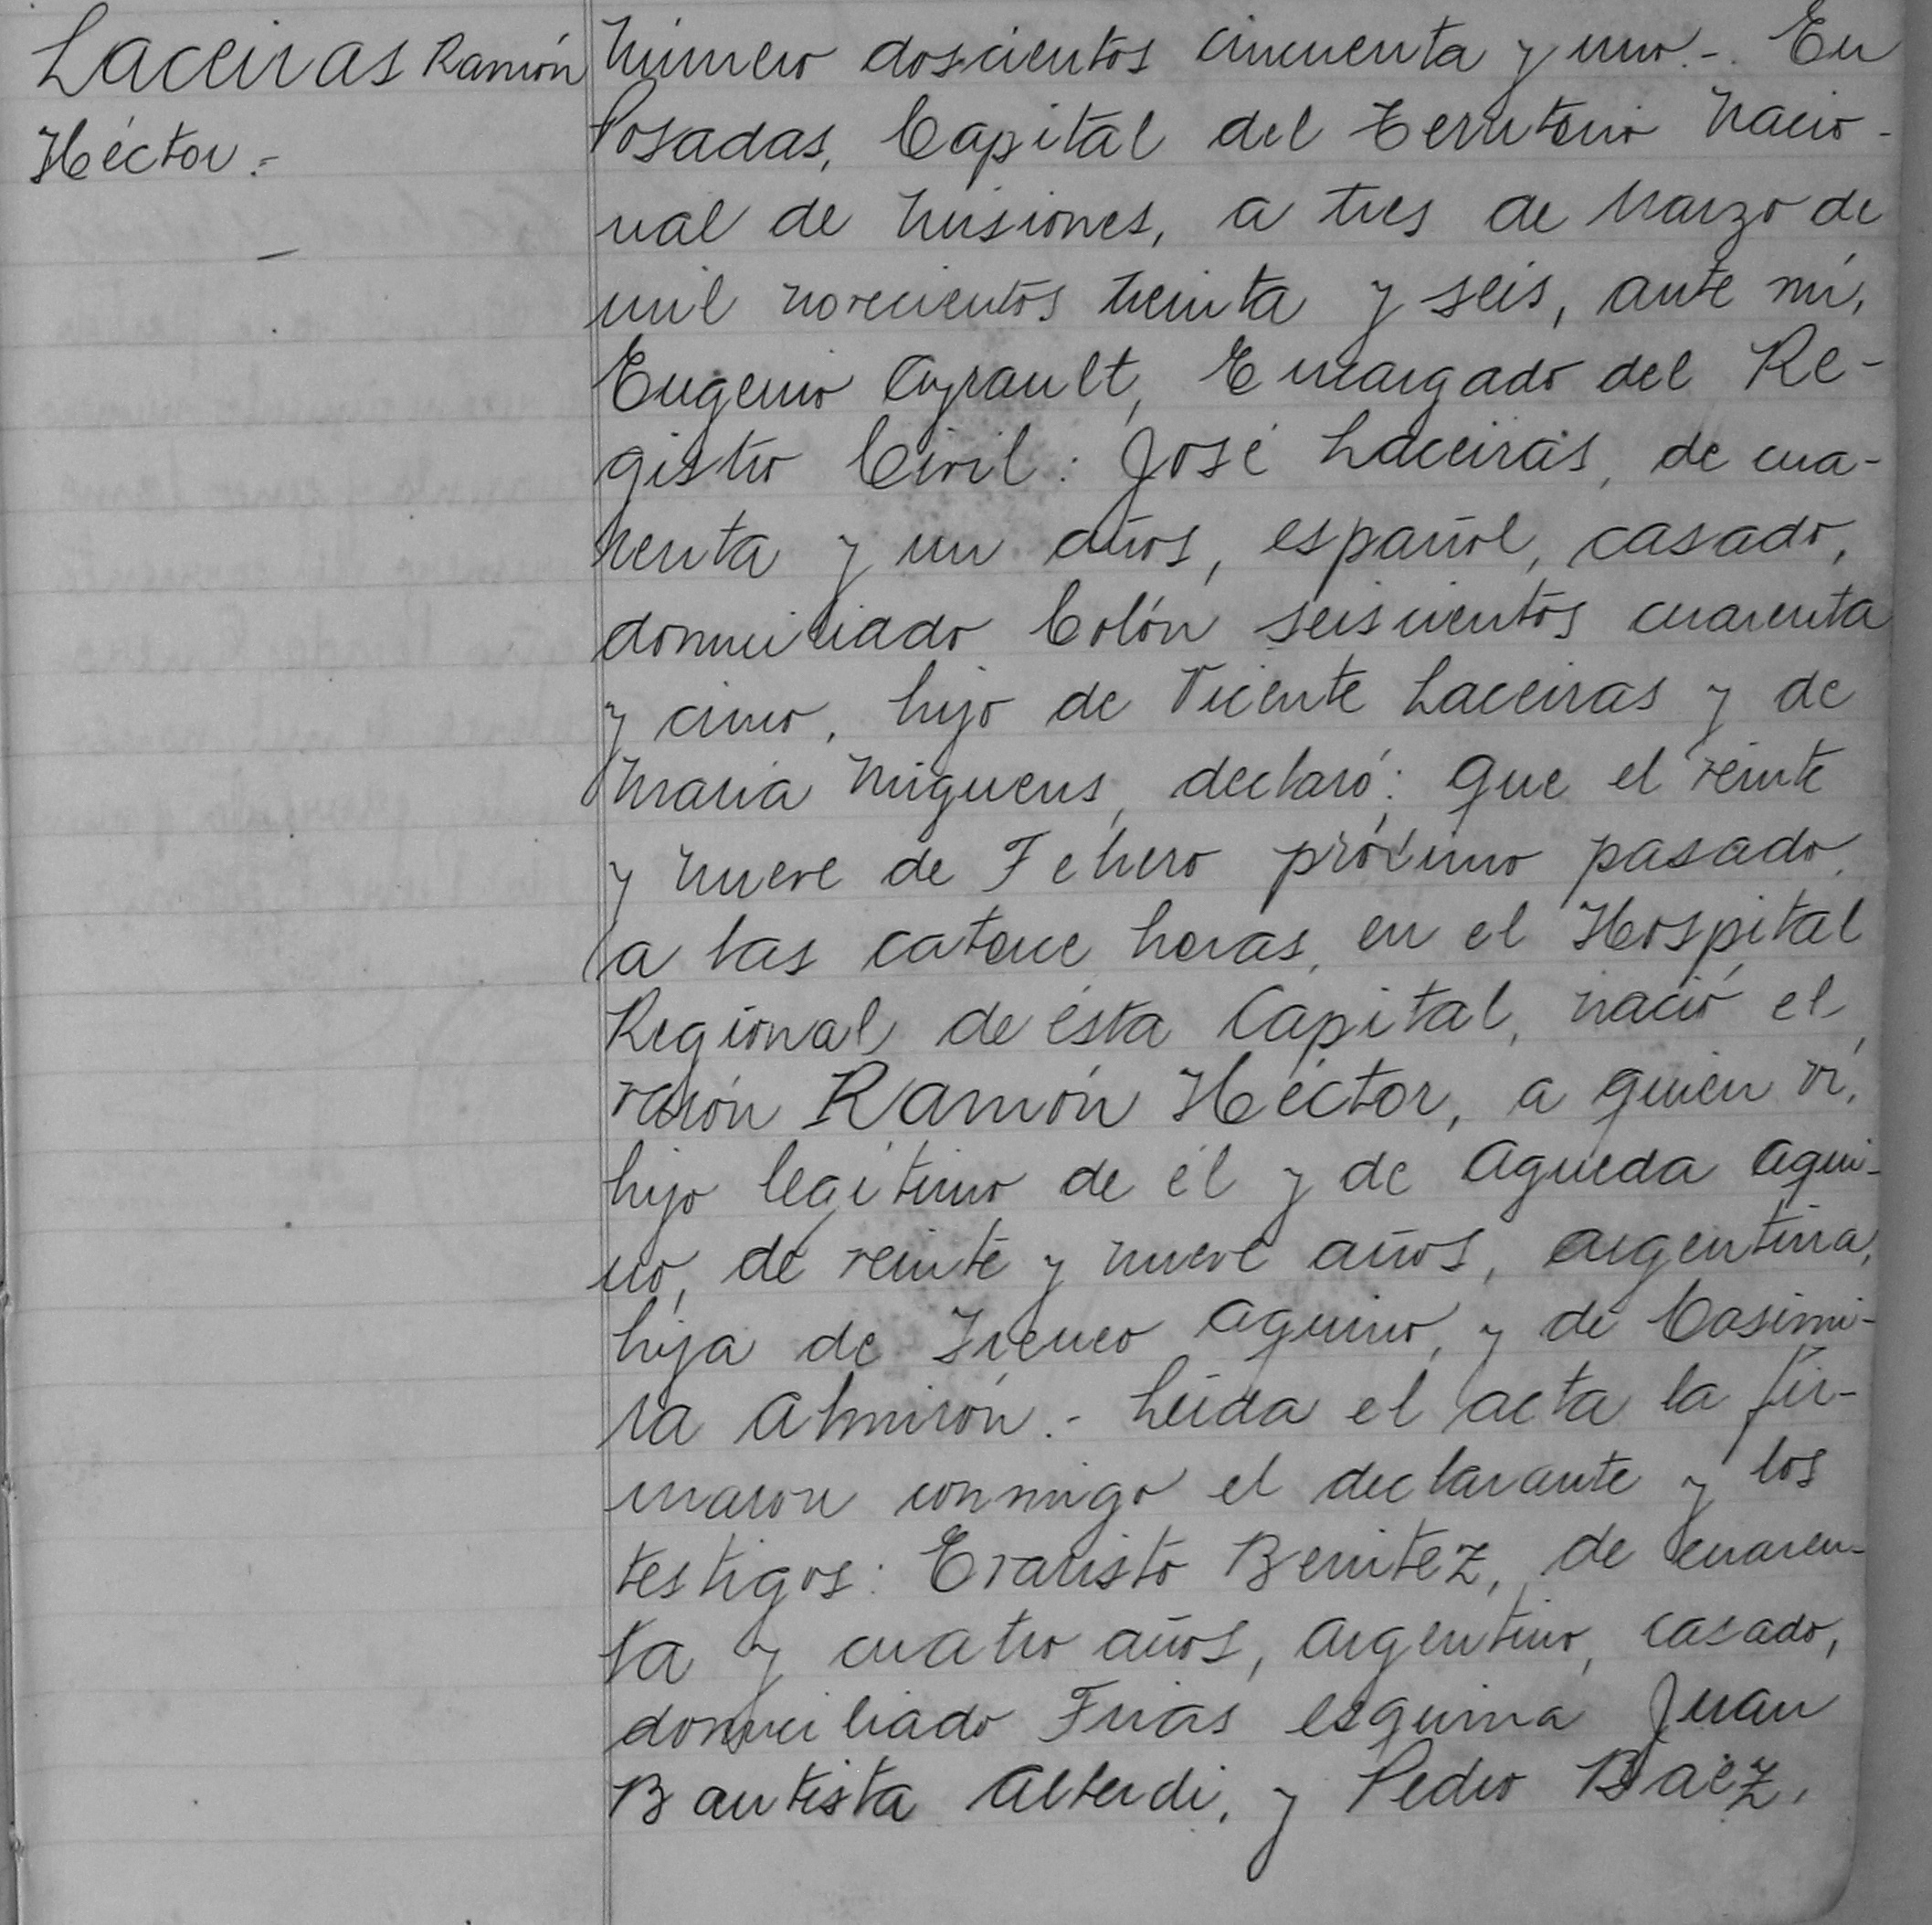 Laceiras Ramón
Héctor.-
Número doscientos cincuenta y uno.- En
Posadas, Capital del Territorio Nacio-
nal de Misiones, a tres de Marzo de
mil novecientos treinta y seis, ante mí,
Eugenio Ayrault, Encargado del Re-
gistro Civil: José Laceiras, de cua-
renta y un años, español, casado,
domiciliado Colón seiscientos cuarenta
y cinco, hijo de Vicente Laceiras y de
María Miguens, declaró: Que el veinte
y nueve de Febrero próximo pasado,
a las catorce horas, en el Hospital
Regional de ésta Capital, nació el
varón Ramón Héctor, a quien ví,
hijo legítimo de él y de Agueda Aqui-
no, de veinte y nueve años, argentina,
hija de Ireneo Aquino, y de Casimi-
ra Almirón.- Leída el acta la fir-
maron conmigo el declarante y los
testigos: Evaristo Benitez, de cuaren-
ta y cuatro años, argentino, casado,
domiciliado Frias esquina Juan
Bautista Alberdi, y Pedro Baez,